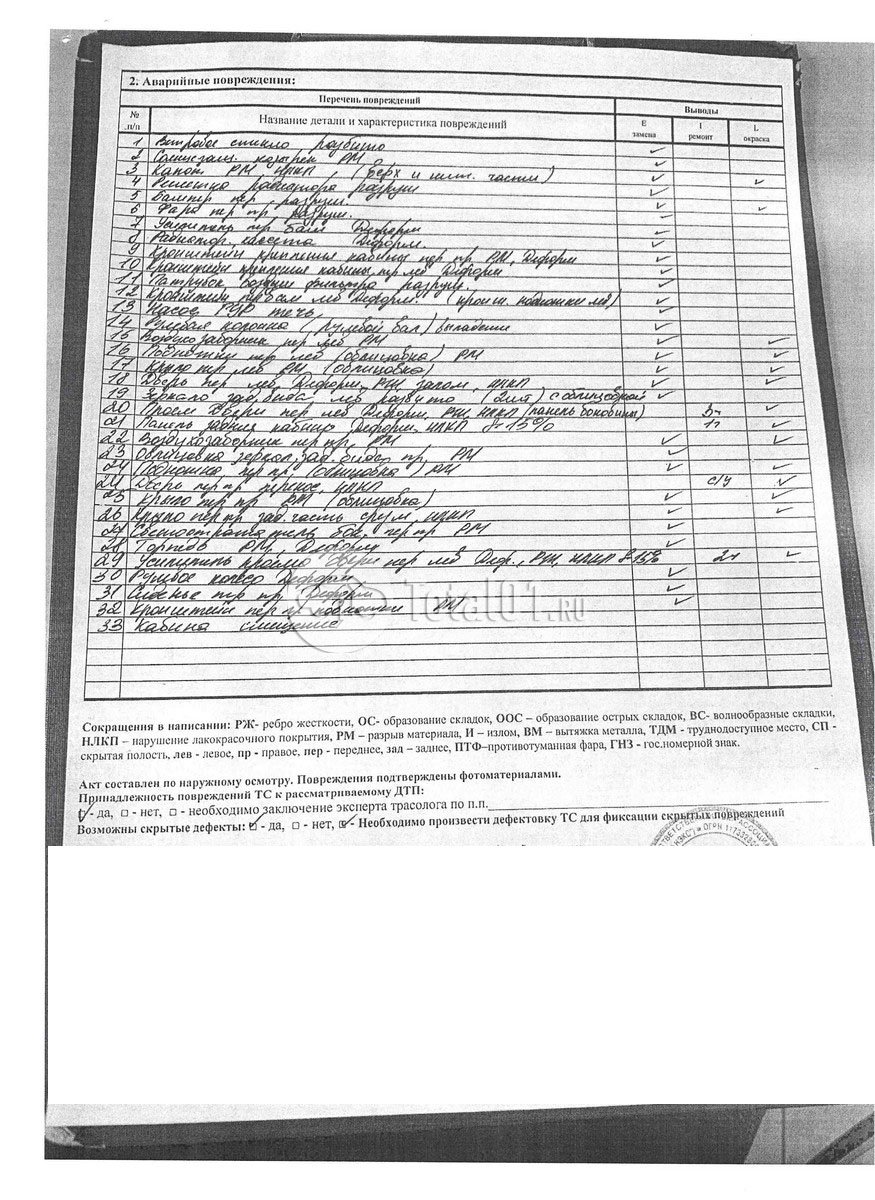 2. Аварийные повреждения:
Перечень повреждений
Выводы
№ п/п
Название детали и характеристика повреждений
E замена
I ремонт
L окраска
1 Ветровое стекло разбито
2 козырек РМ
3 Капот РМ НЛКП (верх и части)
4 Решетка радиатора разруш
5 Бампер пер. разруш.
6 Фара пер пр. разруш.
7 Усилитель пр Деформ
8 Радиатор Деформ.
9 Кронштейн крепления кабины пер пр. РМ, Деформ
10 Кронштейн крепления кабины пр лев Деформ
11 Патрубок фильтра разруш.
12 Кронштейн лев Деформ. (кронш. подножки лев)
13 Насос ГУР течь
14 Рулевая колонка (рулевой вал) выпадение
15 Воздухозаборник пер лев РМ
16 Подножки пер лев (облицовка) РМ
17 Крыло пер лев РМ (облицовка)
18 Дверь пер лев Деформ, РМ, залом, НЛКП
19 Зеркало зад. вида лев разбито (2шт) с облицовкой
20 Проем двери пер лев Деформ, РЖ, НЛКП (панель боковины)
21 Панель задняя кабины Деформ, НЛКП 15%
22 Воздухозаборник пер пр, РМ
23 Облицовка зеркал зад. вида пр РМ
24 Подножка пер пр (облицовка) РМ
24 Дверь пер пр перекос, НЛКП с/у
25 Крыло пер пр РМ (облицовка)
26 Крыло пер пр зад. часть НЛКП
27 Светоотражатель бок. пер пр РМ
28 РМ, Деформ
29 Усилитель проема двери пер лев Деф., РЖ, НЛКП 15%
30 Рулевое колесо Деформ
31 Сиденье пер пр Деформ
32 Кронштейн пер пр подножки РМ
33 Кабина смещение
Total01.RU
Сокращения в написании: РЖ- ребро жесткости, ОС- образование складок, ООС – образование острых складок, ВС- волнообразные складки,
НЛКП – нарушение лакокрасочного покрытия, РМ – разрыв материала, И – излом, ВМ – вытяжка металла, ТДМ - труднодоступное место, СП -
скрытая полость, лев - левое, пр - правое, пер - переднее, зад – заднее, ПТФ–противотуманная фара, ГНЗ - гос.номерной знак.
Акт составлен по наружному осмотру. Повреждения подтверждены фотоматериалами.
Принадлежность повреждений ТС к рассматриваемому ДТП:
- да, □ - нет, □ - необходимо заключение эксперта трасолога по п.п.
Возможны скрытые дефекты: - да, □ - нет, - Необходимо произвести дефектовку ТС для фиксации скрытых повреждений